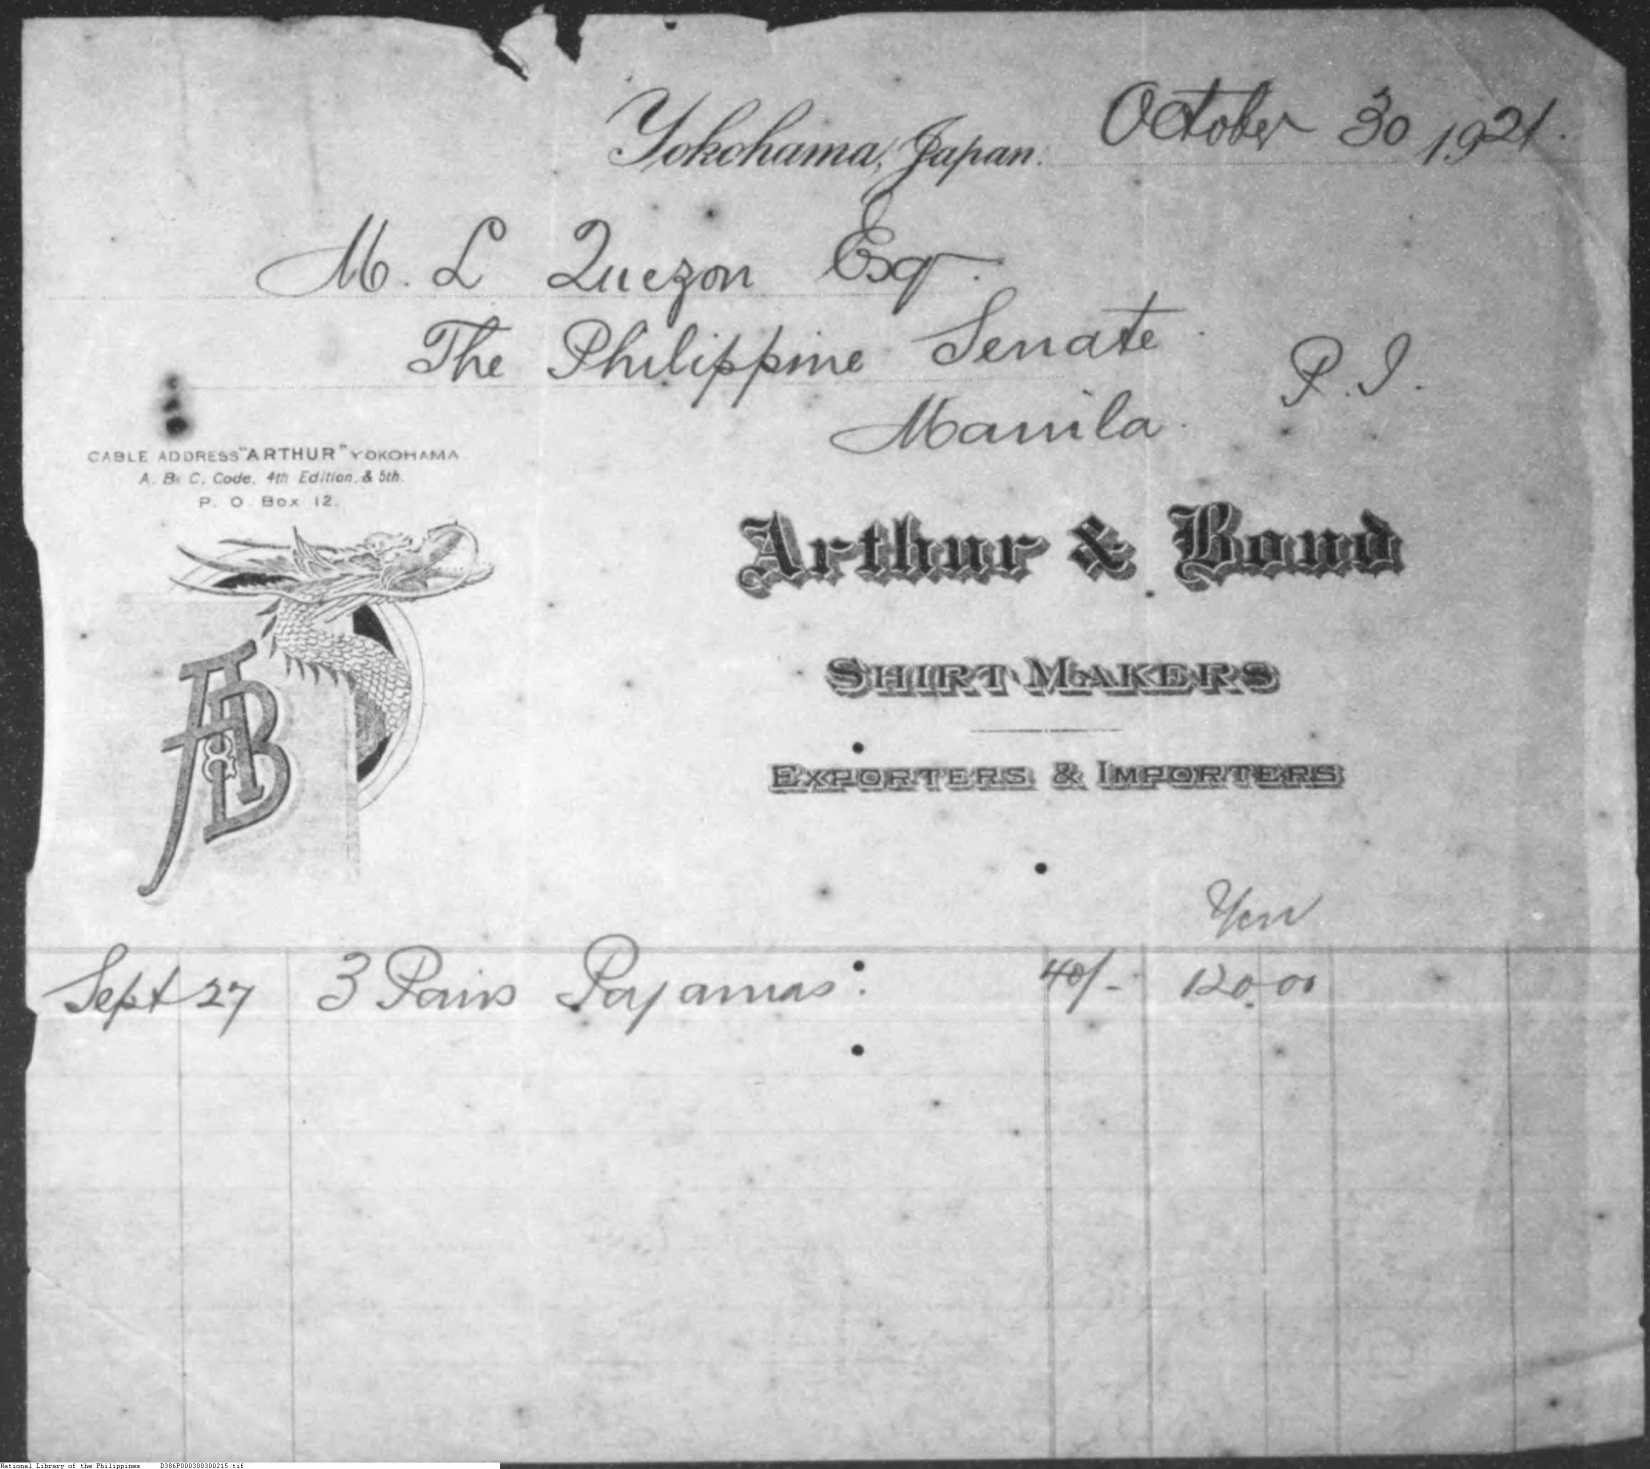 Yokohama, Japan. October 30 1921.
M. L Quezon Esq.
The Philippine Senate.
Manila. P. I.
CABLE ADDRESS "ARTHUR" YOKOHAMA
A. B. C. Code. 4th Edition. & 5th.
P. O Box 12.
Arthur & Bond
SHIRT MAKERS
EXPORTERS & IMPORTERS
A&B
Yen
Sept 27 3 Pairs Pajamas: 40/- 120.00
National Library of the Philippines D386P000300300215.tif